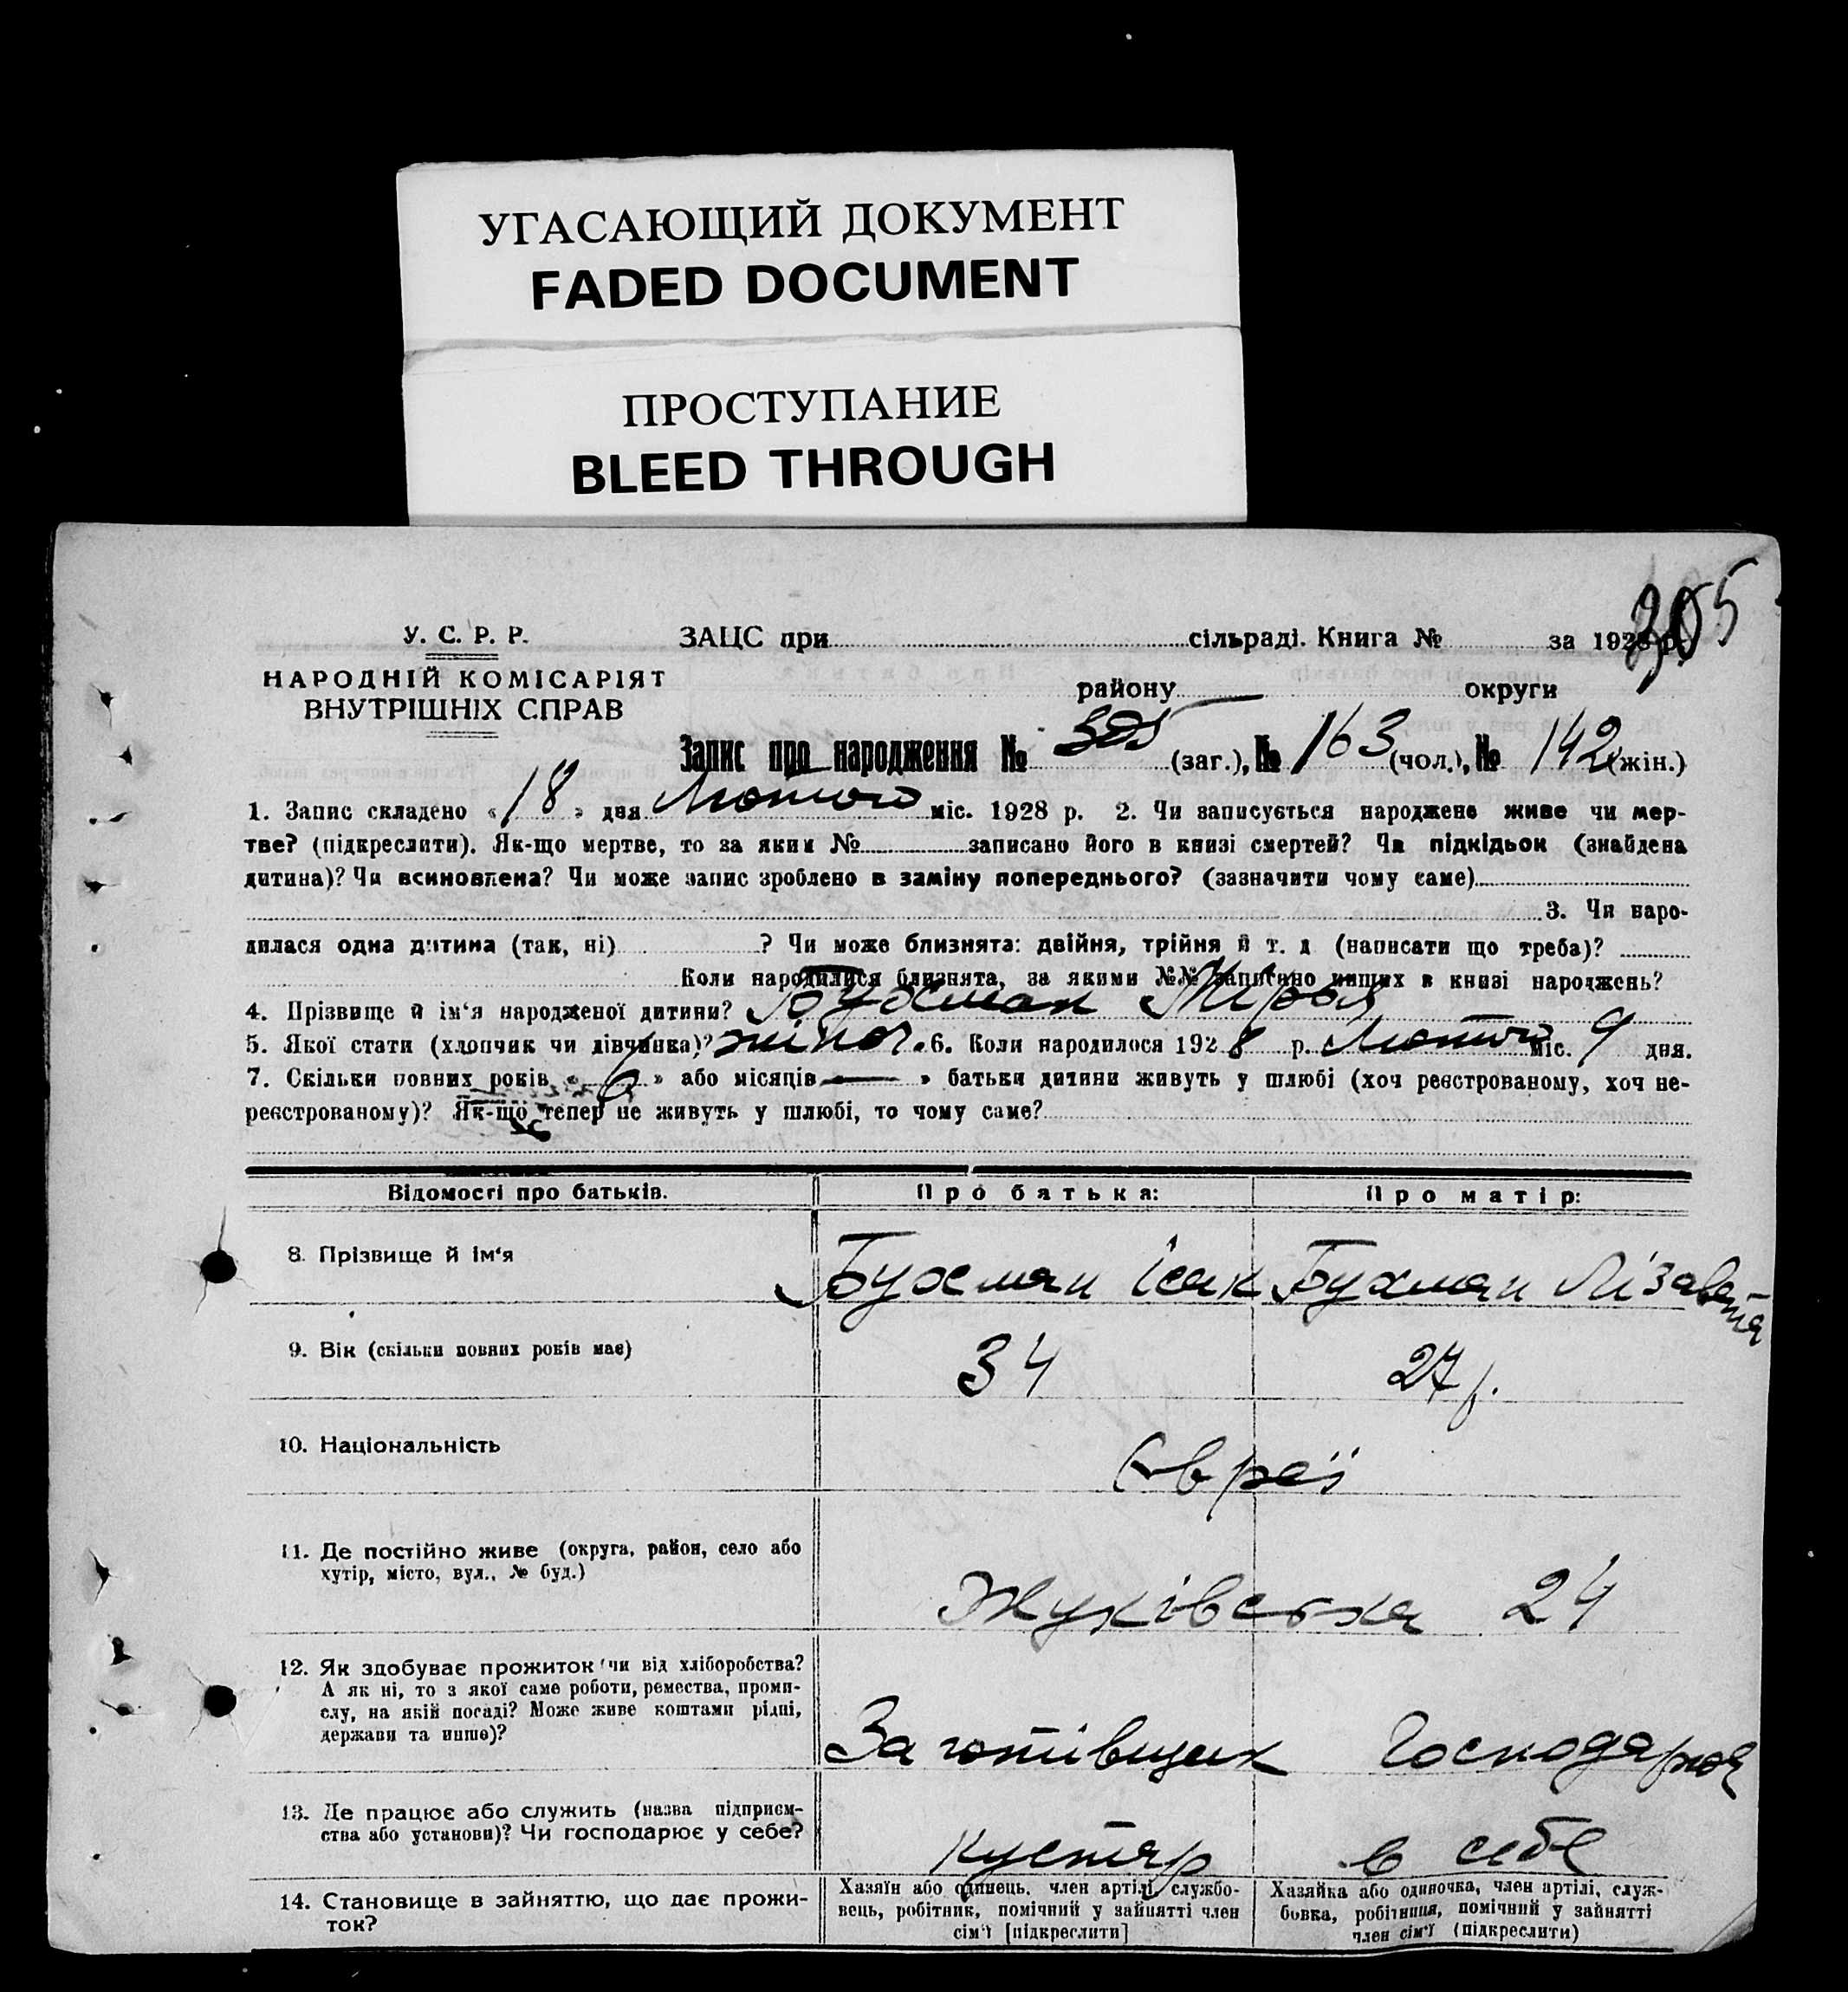 УГАСАЮЩИЙ ДОКУМЕНТ
FADED DOCUMENT
ПРОСТУПАНИЕ
BLEED THROUGH
305
У. С. Р. Р.
НАРОДНІЙ КОМІСАРІЯТ
ВНУТРІШНІХ СПРАВ
ЗАЦС при сільраді. Книга № за 1928 р.
району округи
Запис про народження № 305 (заг.), № 163 (чол.), № 142 (жін.)
1. Запис складено « 18 » дня Лютого міс. 1928 р. 2. Чи записується народжене живе чи мер-
тве? (підкреслити). Як-що мертве, то за яким № записано його в книзі смертей? Чи підкідьок (знайдена
дитина)? Чи всиновлена? Чи може запис зроблено в заміну попереднього? (зазначити чому саме)
3. Чи наро-
дилася одна дитина (так, ні) ? Чи може близнята: двійня, трійня й т. д (написати що треба)?
Коли народилися близнята, за якими №№ записано инших в книзі народжень?
4. Прізвище й ім‘я народженої дитини? Бухман Мірья
5. Якої стати (хлопчик чи дівчинка)? жіноч. 6. Коли народилося 1928 р. Лютого міс. 9 дня.
7. Скільки повних років « 6 » або місяців — » батьки дитини живуть у шлюбі (хоч реєстрованому, хоч не-
реєстрованому)? Як-що тепер не живуть у шлюбі, то чому саме?
Відомості про батьків. Про батька: Про матір:
8. Прізвище й ім‘я Бухман Ісак Бухман Лізавета
9. Вік (скільки повних років має) 34 27 р.
10. Національність Євреї
11. Де постійно живе (округа, район, село або
хутір, місто, вул., № буд.)
Жуківська 24
12. Як здобуває прожиток (чи від хліборобства?
А як ні, то з якої саме роботи, ремества, проми-
слу, на якій посаді? Може живе коштами рідні,
держави та инше)?
Заготівщик Господарює
13. Де працює або служить (назва підприєм-
ства або установи)? Чи господарює у себе?
Кустар в себе
14. Становище в зайняттю, що дає прожи-
ток?
Хазяїн або одинець, член артілі, службо-
вець, робітник, помічний у зайнятті член
сім‘ї [підкреслити]
Хазяйка або одиночка, член артілі, служ-
бовка, робітниця, помічний у зайнятті
член сім‘ї (підкреслити)